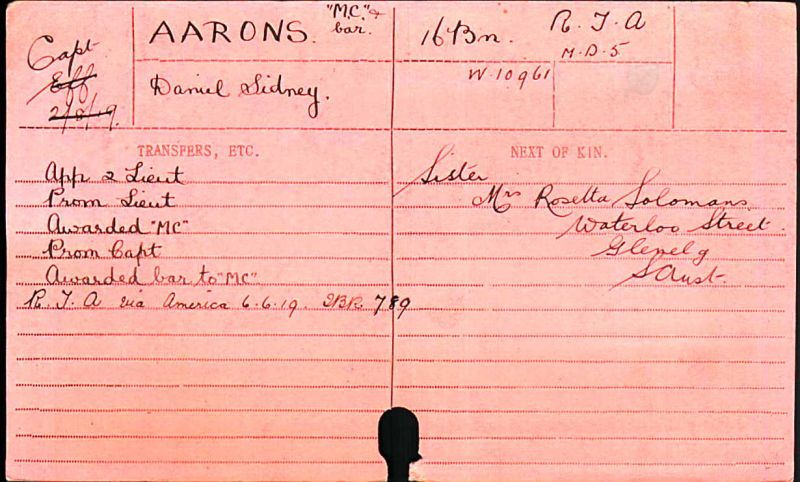 Capt
Eff
2/8/19.
AARONS. "M.C." & bar.
Daniel Sidney.
16 Bn. R.T.A
M.D.5
W.10961
TRANSFERS, ETC.
App 2 Lieut
Prom Lieut
Awarded "MC"
Prom Capt
Awarded bar to "MC"
R.T.A via America 6.6.19. 789
NEXT OF KIN.
Sister
Mrs Rosetta Solomans
Waterloo Street.
Glenelg
S Aust.